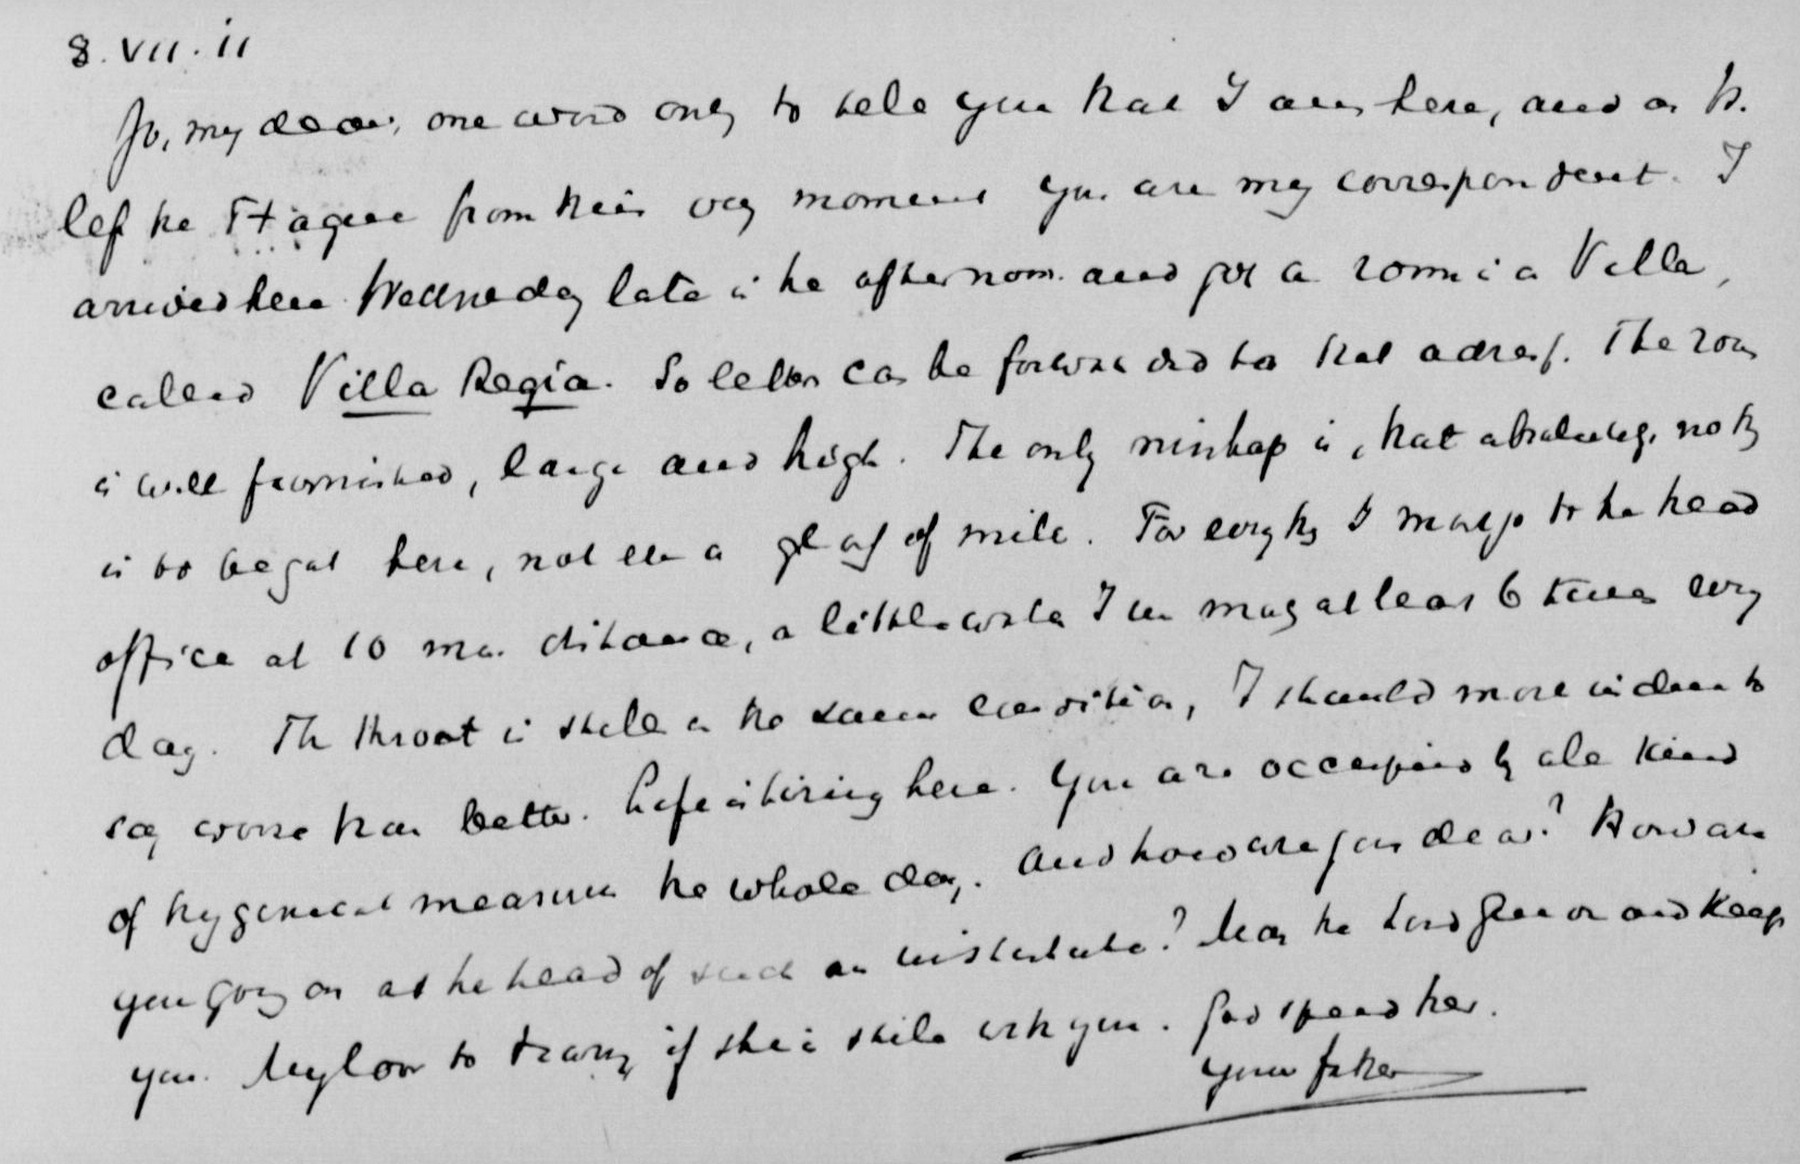 8.VII.11
Jo, my dear, one word only to tell you that I am here, and as H.
left the Hague from this very moment you are my correspondent. I
arrived here Wednesday late in the afternoon and got a room in a Villa,
called Villa Regia. So letters can be forwarded to that adress. The room
is well furnished, large and high. The only mishap is, that absolutely nothing
is to be got here, not even a glass of milk. For everything I must go to the head
office at 10 min. distance, a little walk I make at least 6 times every
day. The throat is still in the same condition, I should more incline to
say worse than better. Life is tiring here. You are occupied by all kind
of hygienical measures the whole day. And how are you dear? How are
you going on at the head of such an institute? May the Lord and keep
you. My love to if she is still with you. God speed her.
your father